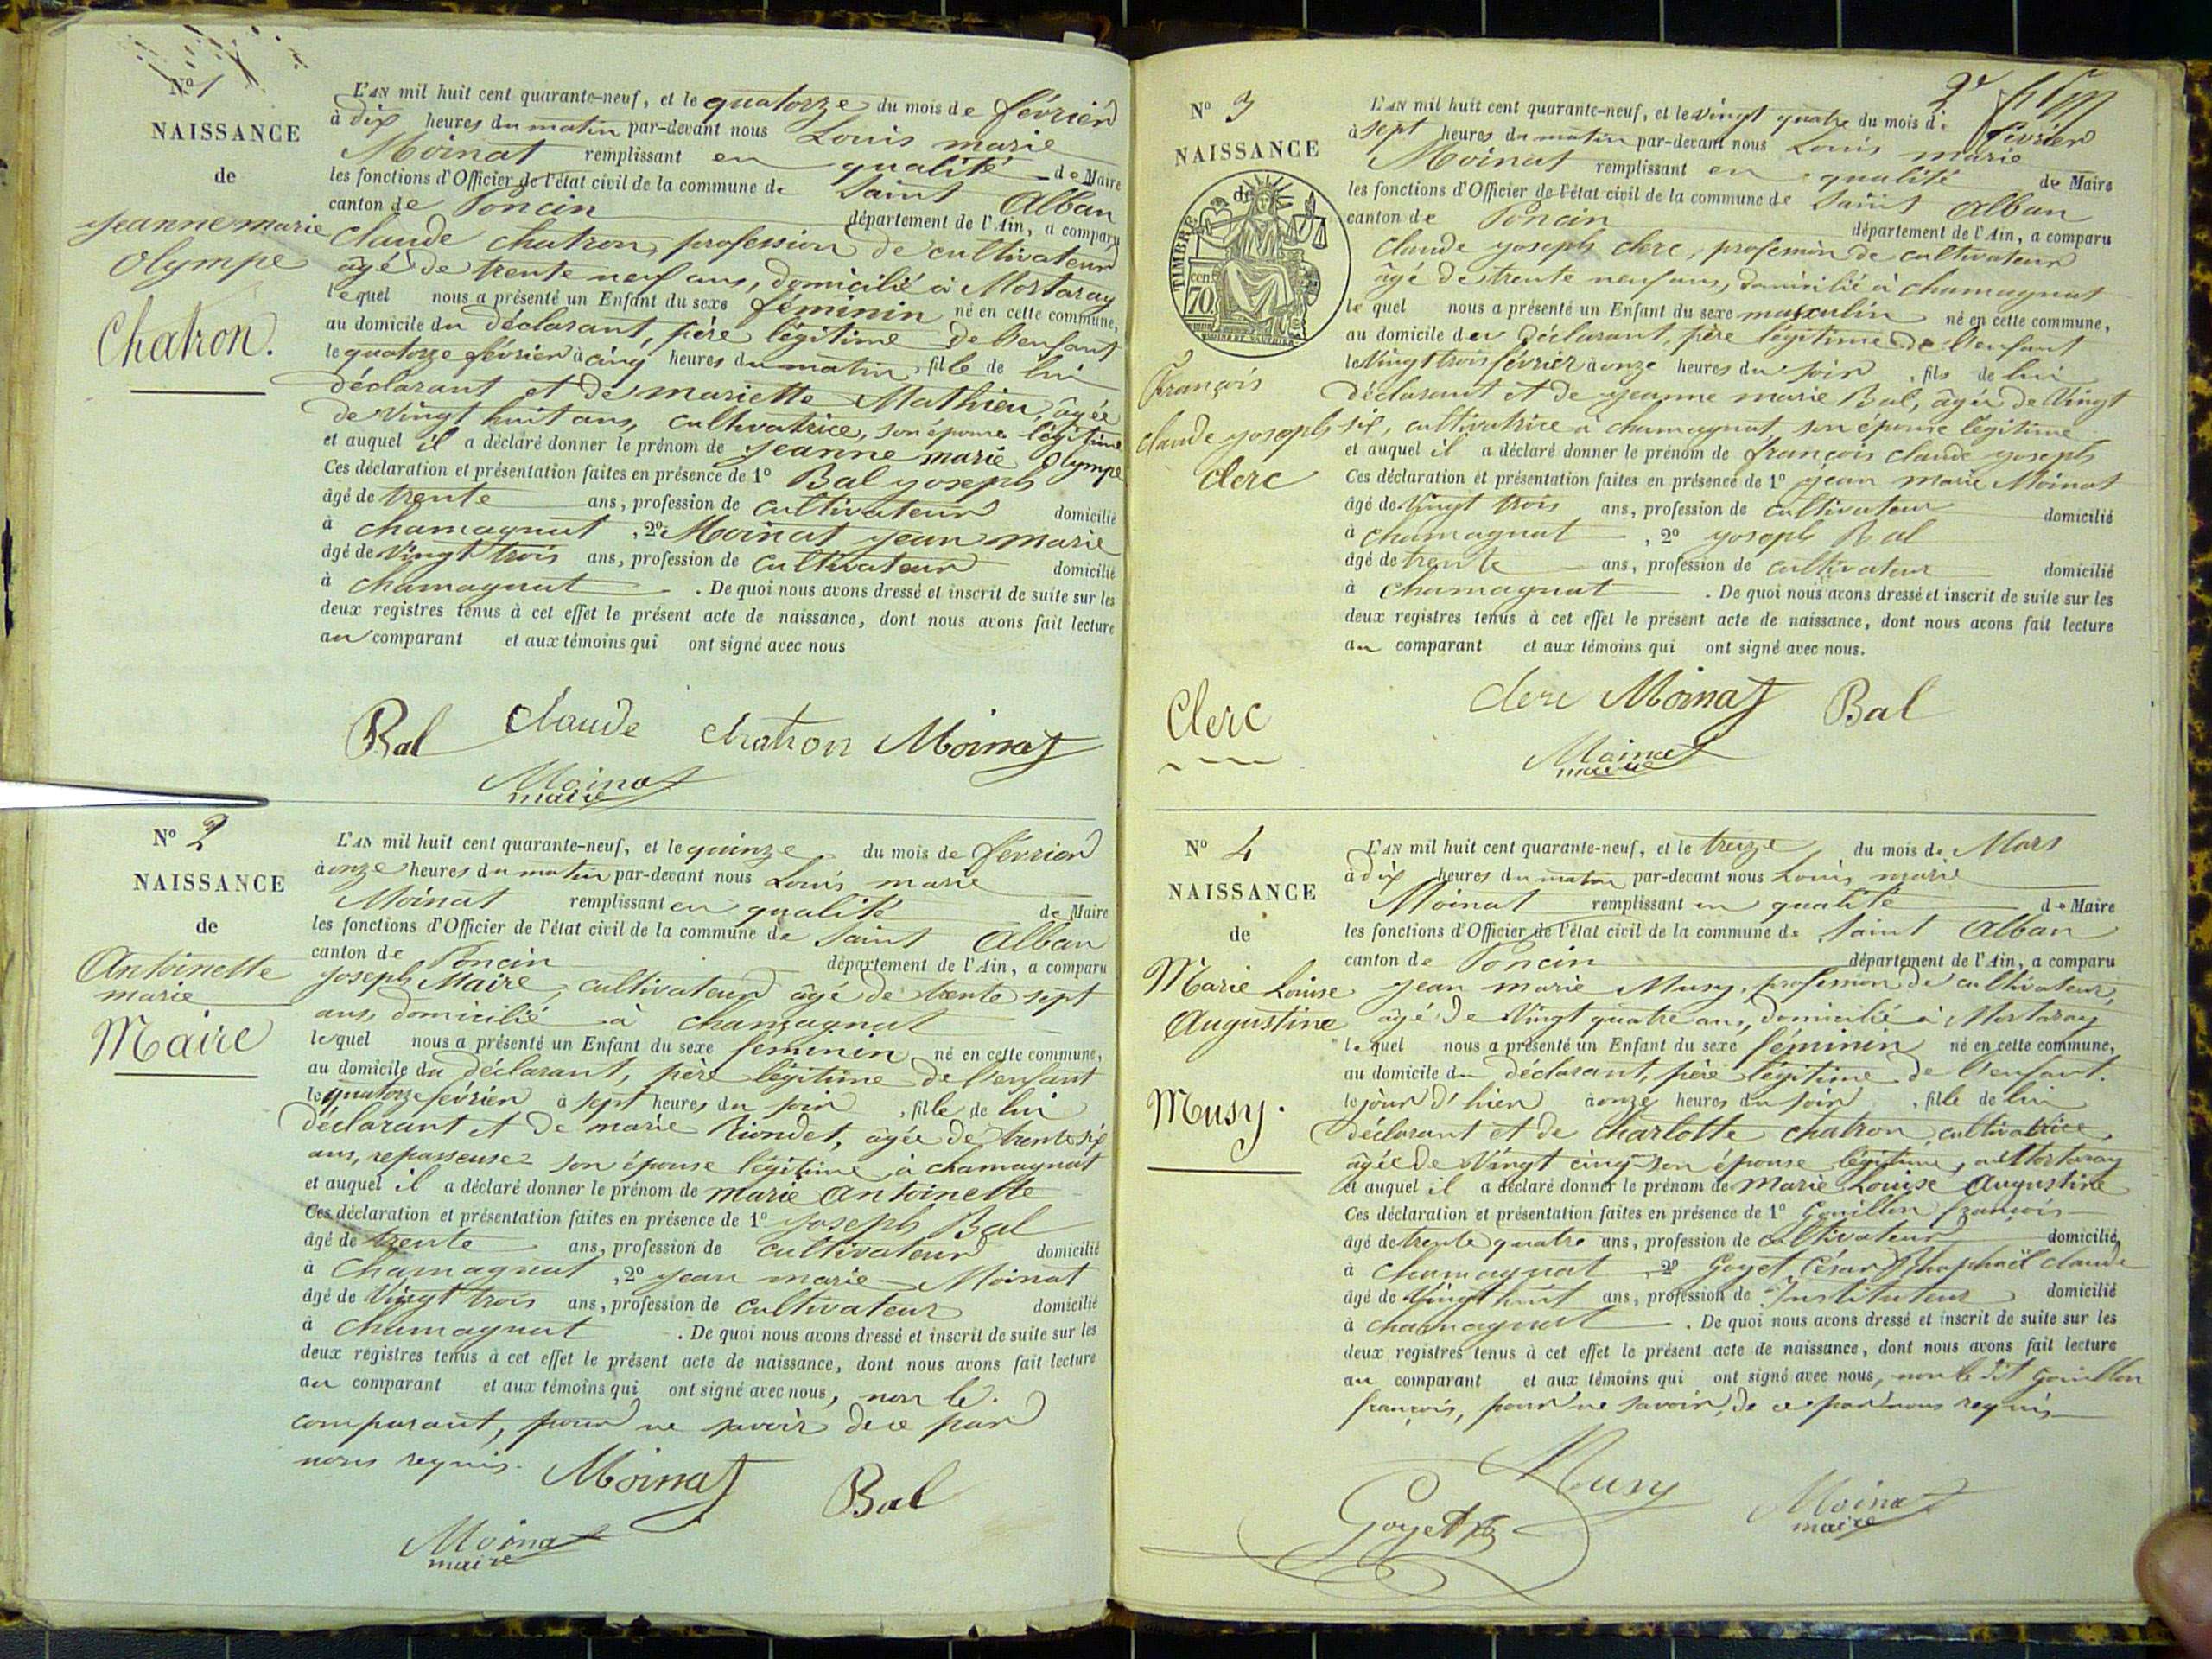 N° 1
NAISSANCE
de
Jeanne marie
Olympe
Chatron.
L'AN mil huit cent quarante-neuf, et le quatorze du mois de février
à dix heures du matin par-devant nous Louis marie
Moinat remplissant en qualité de Maire
les fonctions d'Officier de l'état civil de la commune de Saint Alban
canton de Poncin département de l'Ain, a comparu
Claude chatron, profession de cultivateur
âgé de trente neuf ans, domicilié à Mortaray
lequel nous a présenté un Enfant du sexe féminin né en cette commune,
au domicile du déclarant, père légitime de l'enfant
le quatorze février à cinq heures du matin, fille de lui
déclarant et de mariette Mathieu, âgée
de vingt huit ans, cultivatrice, son épouse légitime
et auquel il a déclaré donner le prénom de Jeanne marie Olympe
Ces déclaration et présentation faites en présence de 1° Bal yoseph
âgé de trente ans, profession de cultivateur domicilié
à chamagnat, 2° Moinat yean marie
âgé de vingt trois ans, profession de cultivateur domicilié
à chamagnat. De quoi nous avons dressé et inscrit de suite sur les
deux registres tenus à cet effet le présent acte de naissance, dont nous avons fait lecture
au comparant et aux témoins qui ont signé avec nous
Bal claude chatron Moinat
Moinat
maire
N° 2
NAISSANCE
de
Antoinette
marie
Maire
L'AN mil huit cent quarante-neuf, et le quinze du mois de février
à onze heures du matin par-devant nous Louis marie
Moinat remplissant en qualité de Maire
les fonctions d'Officier de l'état civil de la commune de Saint Alban
canton de Poncin département de l'Ain, a comparu
yoseph Maire, cultivateur âgé de trente sept
ans, domicilié à chamagnat
lequel nous a présenté un Enfant du sexe feminin né en cette commune,
au domicile du déclarant, père légitime de l'enfant
le quatorze février à sept heures du soir, fille de lui
déclarant et de marie Riondet, âgée de trente six
ans, repasseuse son épouse légitime à chamagnat
et auquel il a déclaré donner le prénom de marie Antoinette
Ces déclaration et présentation faites en présence de 1° yoseph Bal
âgé de trente ans, profession de cultivateur domicilié
à chamagnat, 2° yean marie Moinat
âgé de vingt trois ans, profession de cultivateur domicilié
à chamagnat. De quoi nous avons dressé et inscrit de suite sur les
deux registres tenus à cet effet le présent acte de naissance, dont nous avons fait lecture
au comparant et aux témoins qui ont signé avec nous, non le
comparant, pour ne savoir de ce par
nous requis.
Moinat Bal
Moinat
maire
2e
N° 3
NAISSANCE
de
TIMBRE
cen 70
François
claude yoseph
clerc
Clerc
L'AN mil huit cent quarante-neuf, et le vingt quatre du mois de février
à sept heures du matin par-devant nous Louis marie
Moinat remplissant en qualité de Maire
les fonctions d'Officier de l'état civil de la commune de Saint Alban
canton de Poncin département de l'Ain, a comparu
Claude yoseph clerc, profession de cultivateur
âgé de trente neuf ans, domicilié à chamagnat
lequel nous a présenté un Enfant du sexe masculin né en cette commune,
au domicile du déclarant, père légitime de l'enfant
le vingt trois février à onze heures du soir, fils de lui
déclarant et de yeanne marie Bal, âgée de vingt
six, cultivatrice à chamagnat, son épouse légitime
et auquel il a déclaré donner le prénom de françois claude yoseph
Ces déclaration et présentation faites en présence de 1° yean marie Moinat
âgé de vingt trois ans, profession de cultivateur domicilié
à chamagnat, 2° yoseph Bal
âgé de trente ans, profession de cultivateur domicilié
à chamagnat. De quoi nous avons dressé et inscrit de suite sur les
deux registres tenus à cet effet le présent acte de naissance, dont nous avons fait lecture
au comparant et aux témoins qui ont signé avec nous.
clerc Moinat Bal
Moinat
maire
N° 4
NAISSANCE
de
Marie Louise
Augustine
Musy.
L'AN mil huit cent quarante-neuf, et le treize du mois de Mars
à dix heures du matin par-devant nous Louis marie
Moinat remplissant en qualité de Maire
les fonctions d'Officier de l'état civil de la commune de Saint Alban
canton de Poncin département de l'Ain, a comparu
yean marie Musy, profession de cultivateur,
âgé de vingt quatre ans, domicilié à Mortaray
lequel nous a présenté un Enfant du sexe féminin né en cette commune,
au domicile du déclarant, père légitime de l'enfant.
le jour d'hier à onze heures du soir, fille de lui
déclarant et de Charlotte chatron cultivatrice,
âgée de vingt cinq son épouse légitime, à Mortaray
et auquel il a déclaré donner le prénom de Marie Louise Augustine
Ces déclaration et présentation faites en présence de 1° Gouillon françois
âgé de trente quatre ans, profession de cultivateur domicilié
à chamagnat, 2° Goyet César Rhaphaël claude
âgé de vingt huit ans, profession de Instituteur domicilié
à chamagnat. De quoi nous avons dressé et inscrit de suite sur les
deux registres tenus à cet effet le présent acte de naissance, dont nous avons fait lecture
au comparant et aux témoins qui ont signé avec nous, non le dit Gouillon
françois, pour ne savoir, de ce par nous requis
Musy
Goyet Moinat
maire